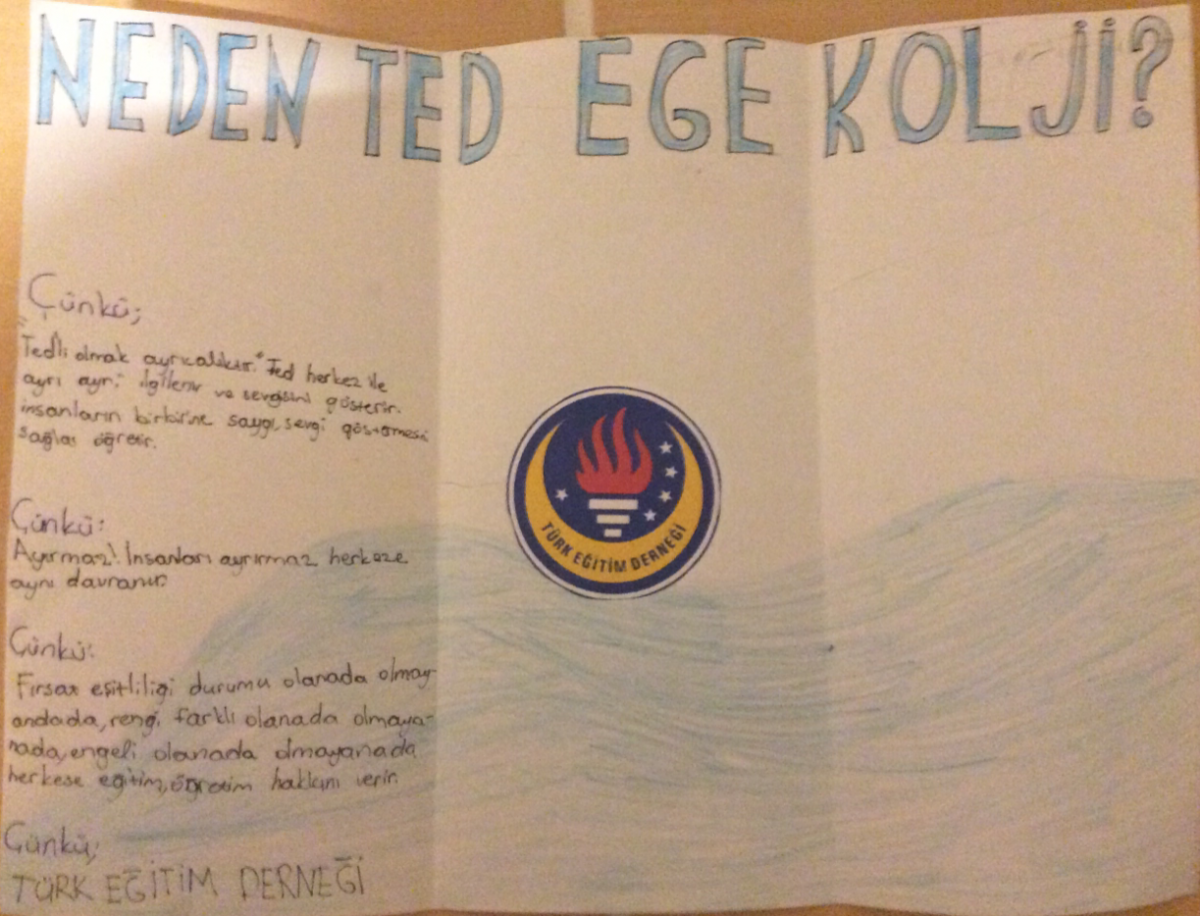 NEDEN TED EGE KOLJİ?
Çünkü;
"Ted'li olmak ayrıcalıktır." Ted herkez ile
ayrı ayrı ilgilenir ve sevgisini gösterir.
insanların birbirine saygı, sevgi göstermesini
sağlar öğretir.
TÜRK EĞİTİM DERNEĞİ
Çünkü:
Ayırmaz! İnsanları ayrırmaz herkeze
aynı davranır.
Çünkü:
Fırsat eşitliliği durumu olanada olmay-
andada, rengi farklı olanada olmaya-
nada, engeli olanada olmayanada
herkese eğitim, öğretim hakkını verir.
Çünkü;
TÜRK EĞİTİM DERNEĞİ